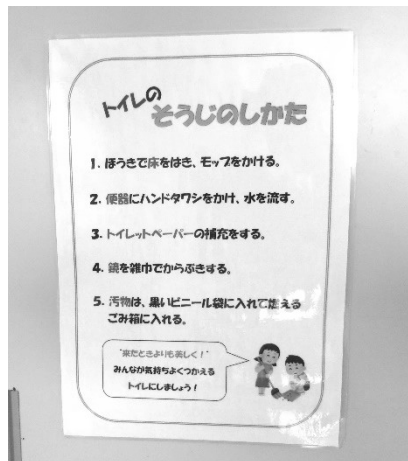 トイレの
そうじのしかた
1. ほうきで床をはき、モップをかける。
2. 便器にハンドタワシをかけ、水を流す。
3. トイレットペーパーの補充をする。
4. 鏡を雑巾でからぶきする。
5. 汚物は、黒いビニール袋に入れて燃える
ごみ箱に入れる。
"来たときよりも美しく！"
みんなが気持ちよくつかえる
トイレにしましょう！